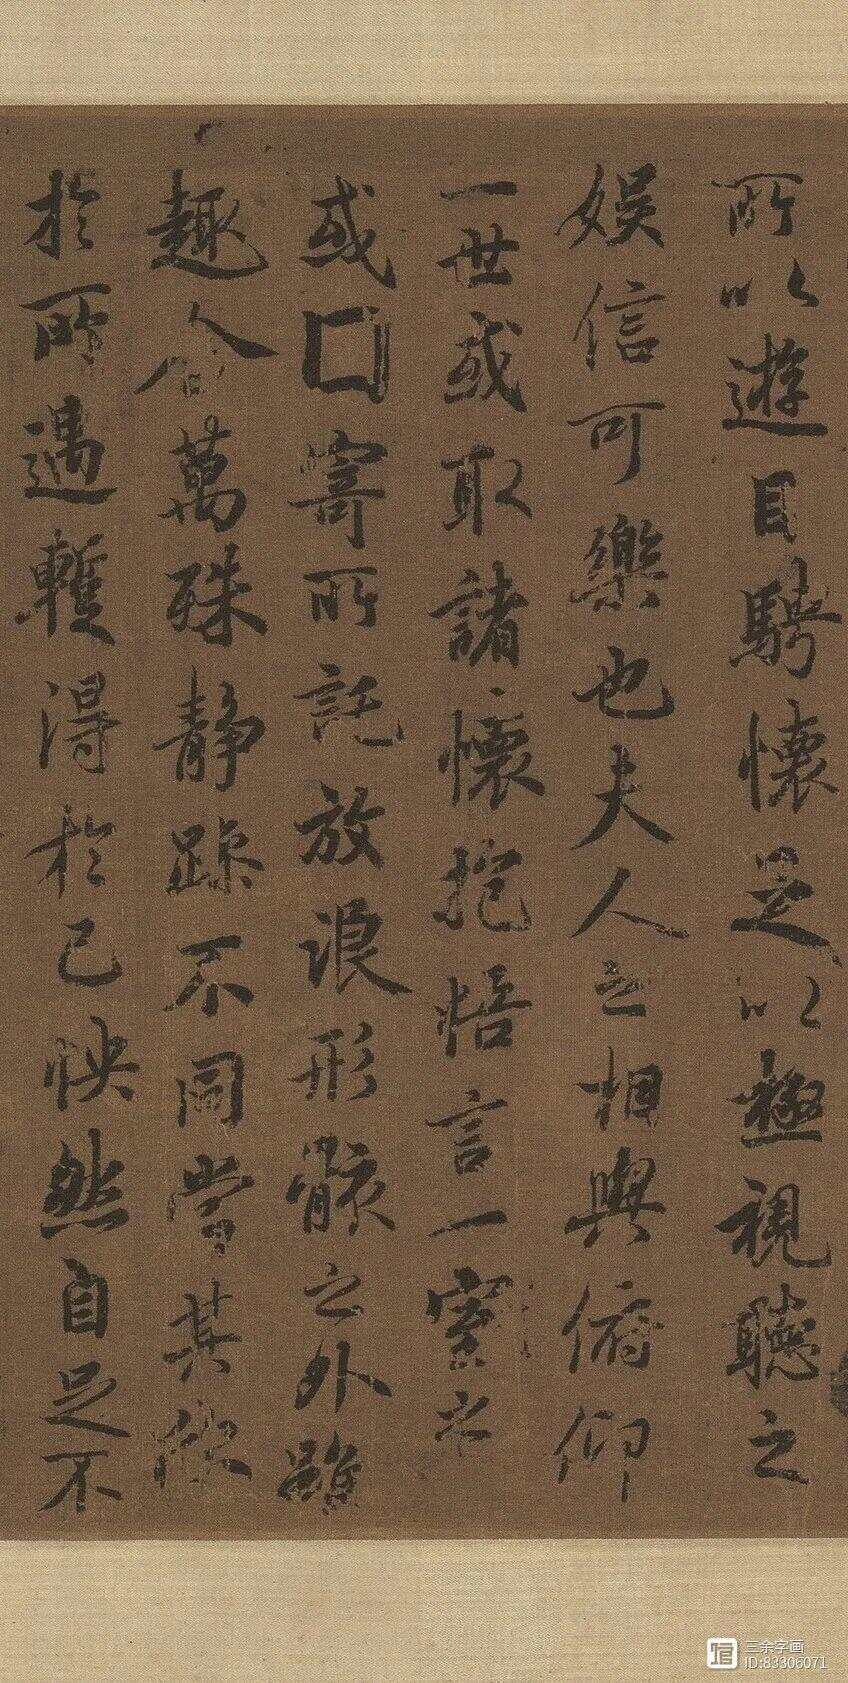 所以遊目騁懷足以極視聽之
娛信可樂也夫人之相與俯仰
一世或取諸懷抱悟言一室之
或囗寄所託放浪形骸之外雖
趣舍萬殊靜躁不同當其欣
於所遇暫得於己怏然自足不
三余字画
ID:83306071